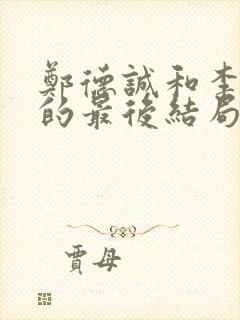 鄭德誠和李
的最後結局
賈母